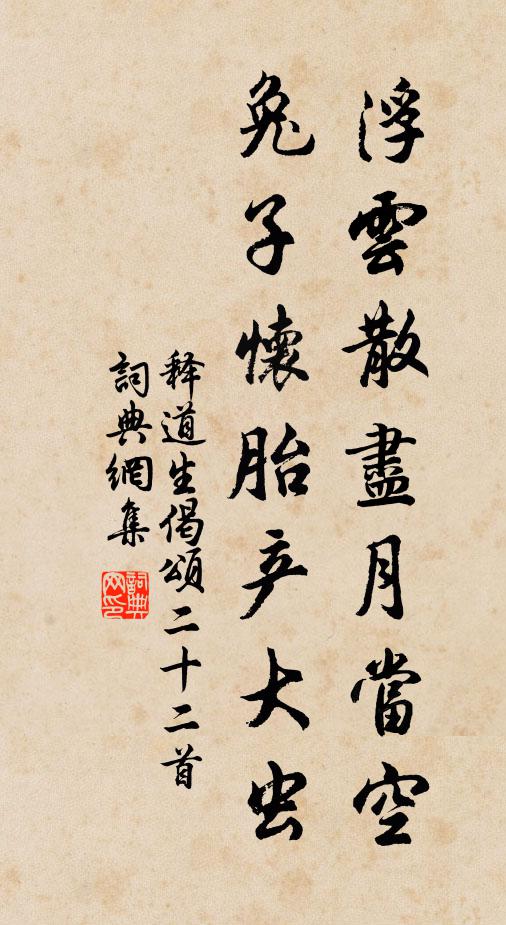 浮雲散盡月當空
兔子懷胎产大虫
释道生偈頌二十二首
詞典網集
詞典网印